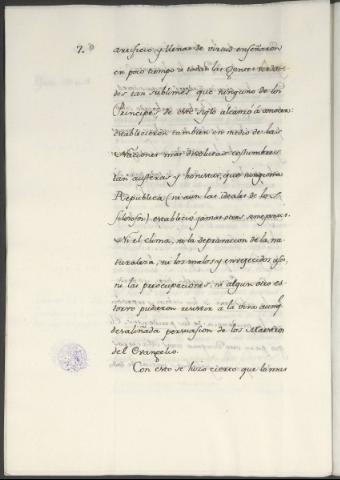 7.
artificio, y llenas de virtud enseñaron
en poco tiempo à todas las Gentes verda-
des tan sublimes, que ninguno de los
Principes de este siglo alcanzò à conocer:
establecieron tambien en medio de las
Naciones mas disolutas costumbres
tan austeras y honestas, que ninguna
Republica (ni aun las ideales de los
filosofos) estableciò jamas otras semejantes.
Ni el clima, ni la depravacion de la na-
turaleza, ni los malos y envegecidos usos,
ni las preocupaciones, ni algun otro es-
torvo pudieron resistir à la viva aunq.
desaliñada persuasion de los Maestros
del Evangelio.
Con esto se hizo cierto que la mas